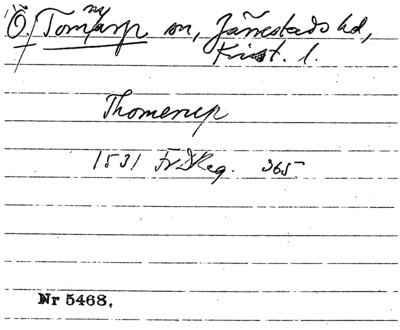 Ö. Tommarp sn, Järrestads hd,
Krist. l.
Thomerup
1531 Fr I Reg. 365
Nr 5468.